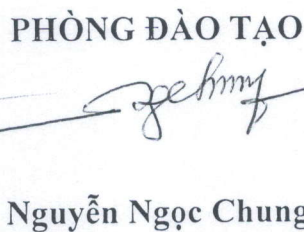 PHÒNG ĐÀO TẠO
Nguyễn Ngọc Chung